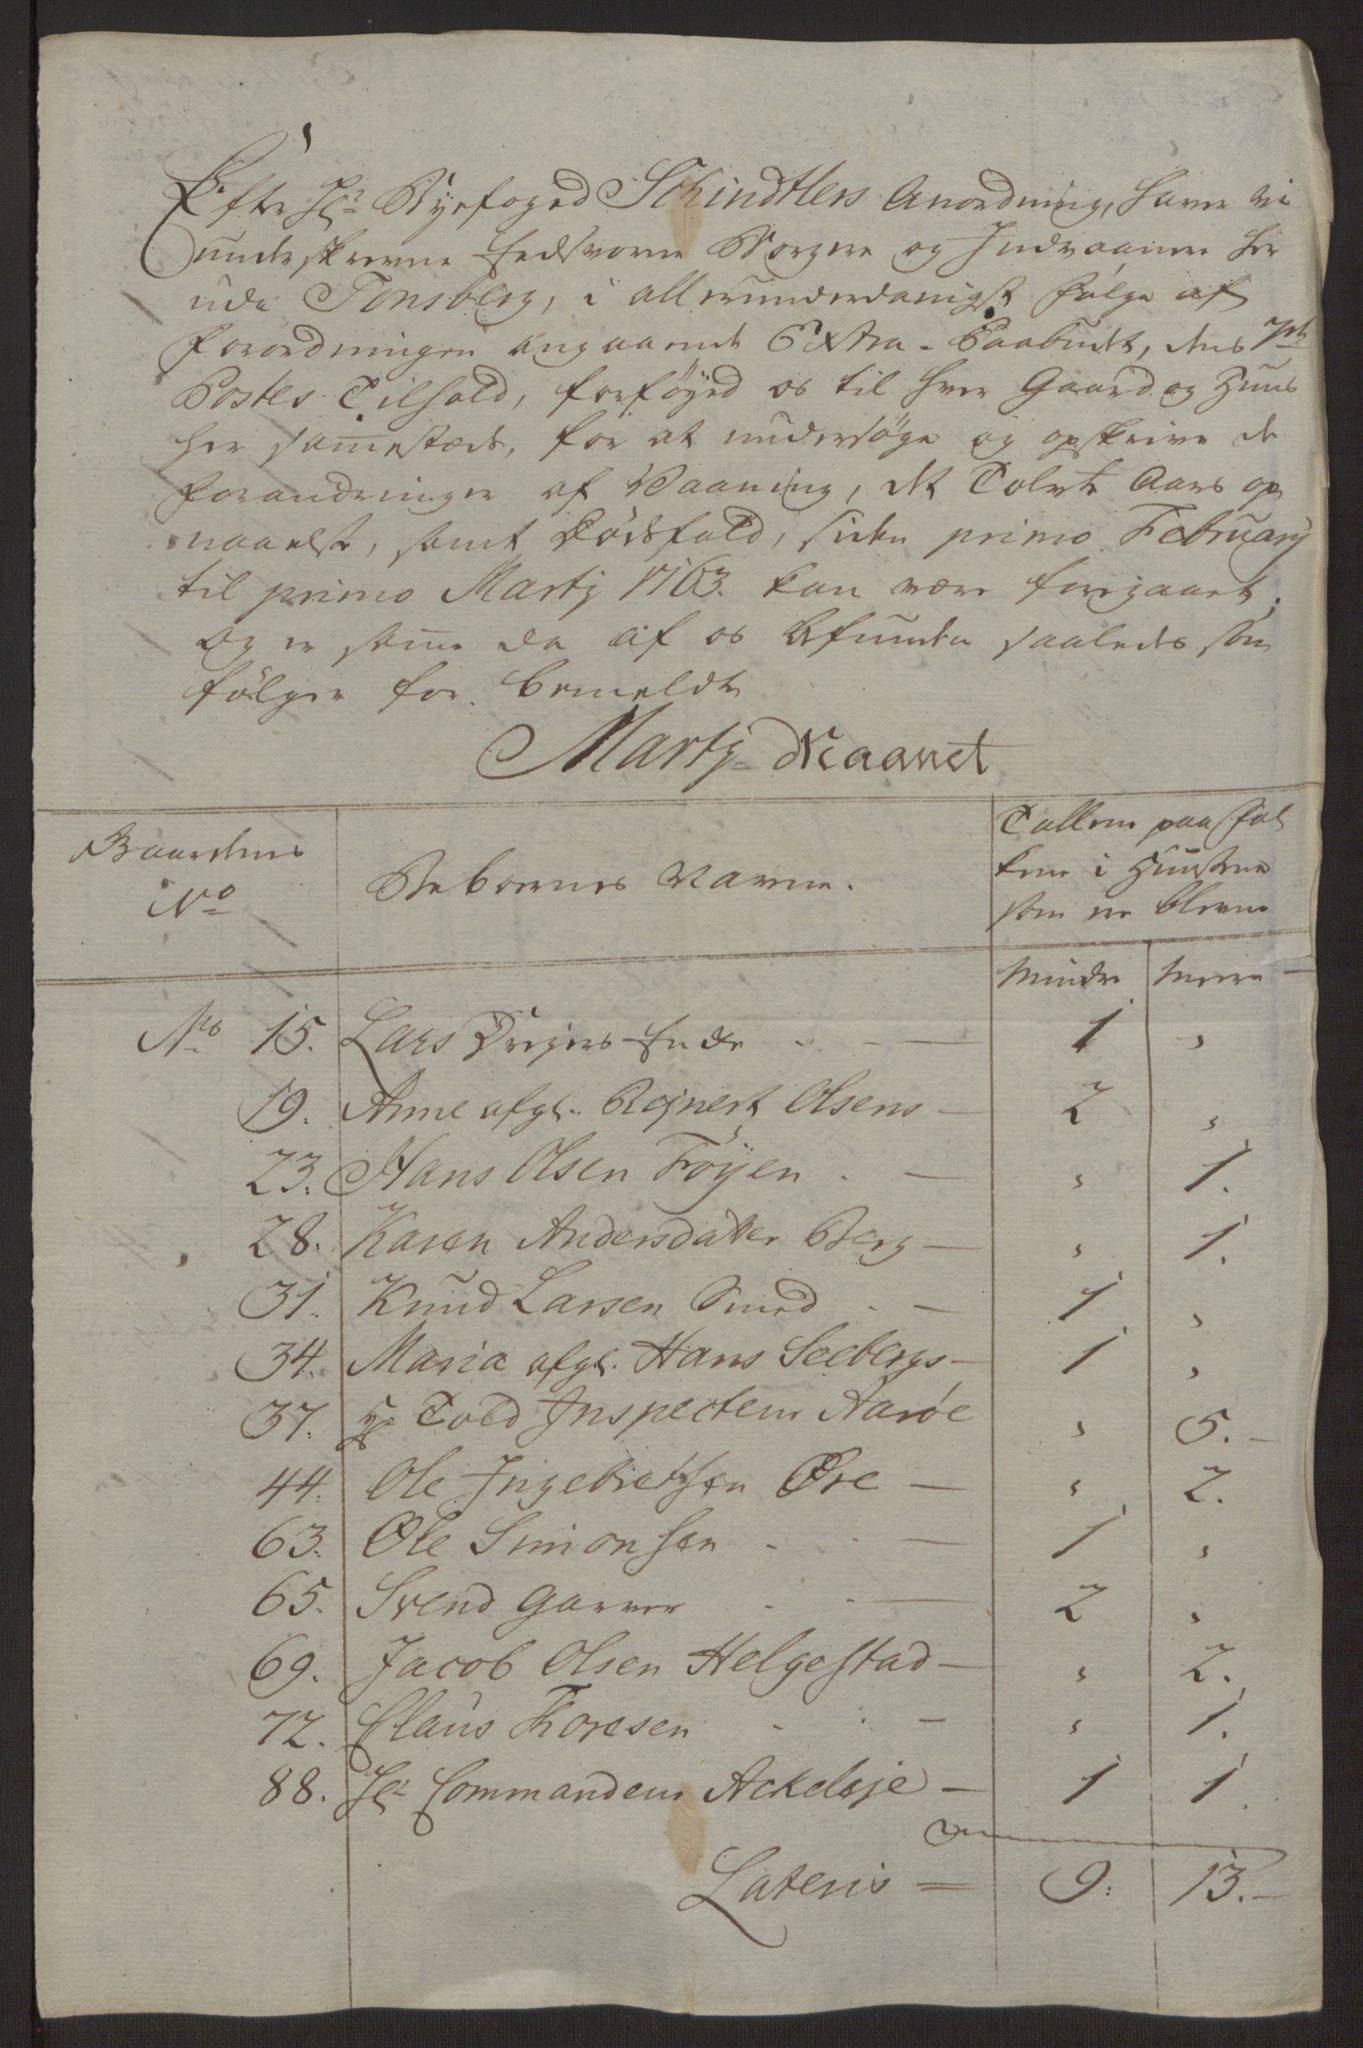 Efter Hr Byefoged Schindtlers Anordning, haver vi
underskrevne Eedsvorne Borgere og Indvaanere her
udi Tønsberg, i allerunderdanigst følge af
forordningen angaaende Extra-Paabudt, dens 7de
Postes Tilhold, forføyed os til hver Gaard og Huus
her sammestæds, for at undersøge og opskrive de
forandringer af Vaaning, det Tolvte Aars op
naaelse, samt Dødsfald, siden primo February
til primo Martij 1763. kan være foregaaet,
og er samme da af os befunden saaledes som
følger for bemeldte
Martij Maanet
Gaardenes No | Beboernes Navne. | Tallene paa fol
kene i Huusene
som er blevne
Mindre | Meere
No 15. Lars Dreyers Enke - 1 "
19. Anne afgl. Rejnert Olsens - 2 "
23. Hans Olsen Føyen - " 1.
28. Karen Andersdatter Berg - " 1.
31. Knud Larsen Smed - 1 "
34. Maria afgl. Hans Seebergs - 1 "
37. Hr Told Inspecteur Aarøe " 5.-
44. Ole Ingebretsen Øre - " 2.
63. Ole Simonsen - 1 "
65. Svend Garver - 2 "
69. Jacob Olsen Helgestad - " 2.
72. Claus Thoresen - " 1.
88. Hr Commandeur Ackeleje - 1 1.
Lateris = 9: 13.-